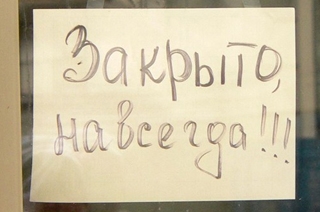 Закрыто,
навсегда!!!